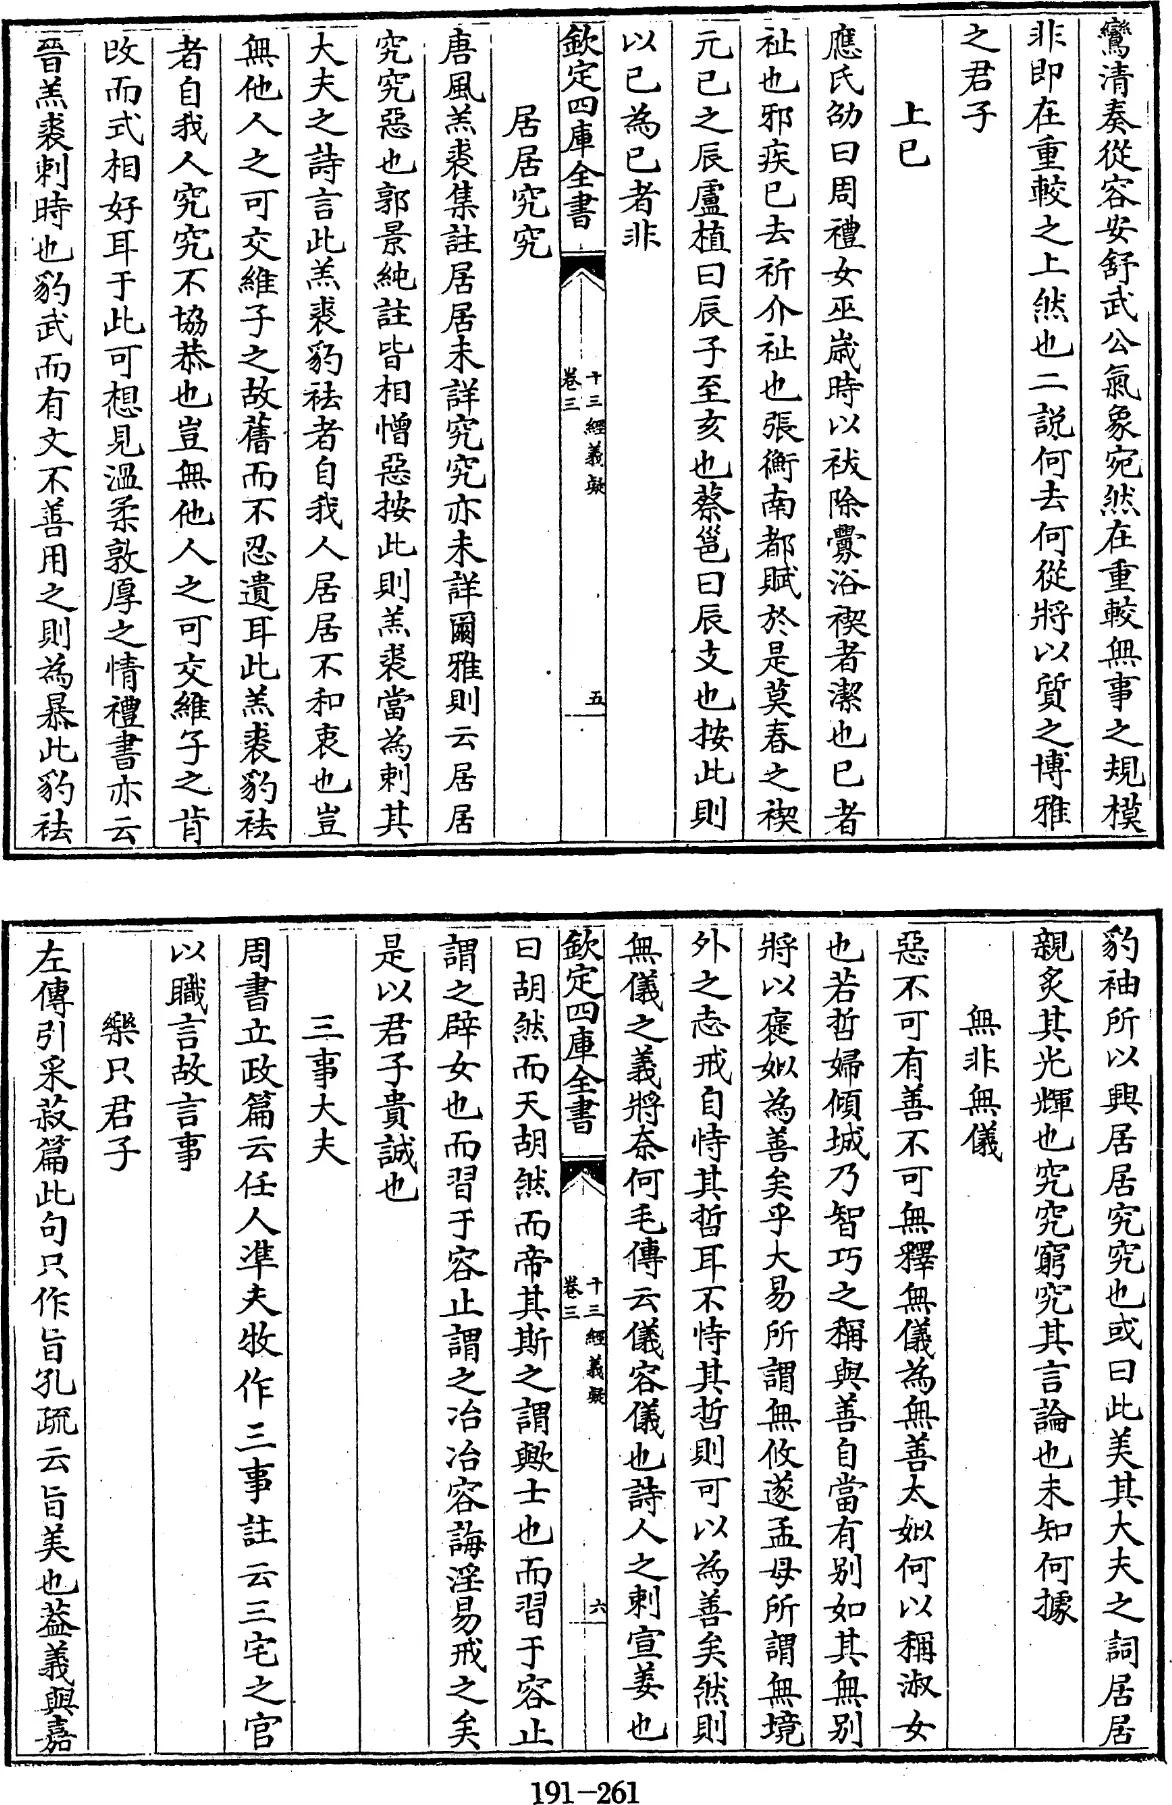 鸞清奏從容安舒武公氣象宛然在重較無事之規模
非即在重較之上然也二説何去何從將以質之博雅
之君子
上巳
應氏劭曰周禮女巫嵗時以祓除釁浴禊者潔也巳者
祉也邪疾已去祈介祉也張衡南都賦於是莫春之禊
元巳之辰盧植曰辰子至亥也蔡邕曰辰支也按此則
以巳為已者非
欽定四庫全書
十三經義疑
卷三
五
居居究究
唐風羔裘集註居居未詳究究亦未詳爾雅則云居居
究究惡也郭景純註皆相憎惡按此則羔裘當為刺其
大夫之詩言此羔裘豹袪者自我人居居不和衷也豈
無他人之可交維子之故舊而不忍遺耳此羔裘豹袪
者自我人究究不協恭也豈無他人之可交維子之肯
改而式相好耳于此可想見溫柔敦厚之情禮書亦云
晉羔裘刺時也豹武而有文不善用之則為暴此豹袪
豹袖所以興居居究究也或曰此美其大夫之詞居居
親炙其光輝也究究窮究其言論也未知何據
無非無儀
惡不可有善不可無釋無儀為無善太姒何以稱淑女
也若哲婦傾城乃智巧之稱與善自當有别如其無别
將以褒姒為善矣乎大易所謂無攸遂孟母所謂無境
外之志戒自恃其哲耳不恃其哲則可以為善矣然則
無儀之義將奈何毛傳云儀容儀也詩人之刺宣姜也
欽定四庫全書
十三經義疑
卷三
六
曰胡然而天胡然而帝其斯之謂歟士也而習于容止
謂之辟女也而習于容止謂之冶冶容誨淫易戒之矣
是以君子貴誠也
三事大夫
周書立政篇云任人準夫牧作三事註云三宅之官
以職言故言事
樂只君子
左傳引采菽篇此句只作旨孔疏云旨美也葢義與嘉
191-261